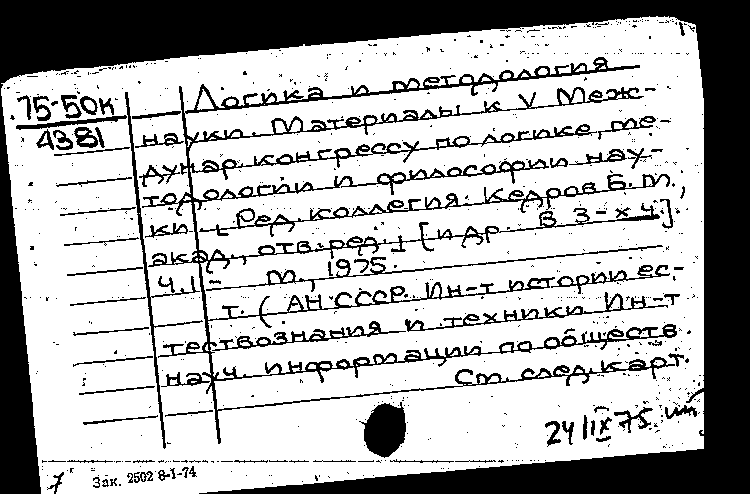 75-50к
4381
Логика и методология
науки. Материалы к V Меж-
дунар. конгрессу по логике, ме-
тодологии и философии нау-
ки. [Ред. коллегия: Кедров Б. М.,
акад., отв. ред.] [и др. В 3-х ч.].
Ч. 1- М., 1975.
т. (АН СССР. Ин-т истории ес-
тествознания и техники Ин-т
науч. информации по обществ.
См. след. карт.
24/IX 75
7 Зак. 2502 8-I-74